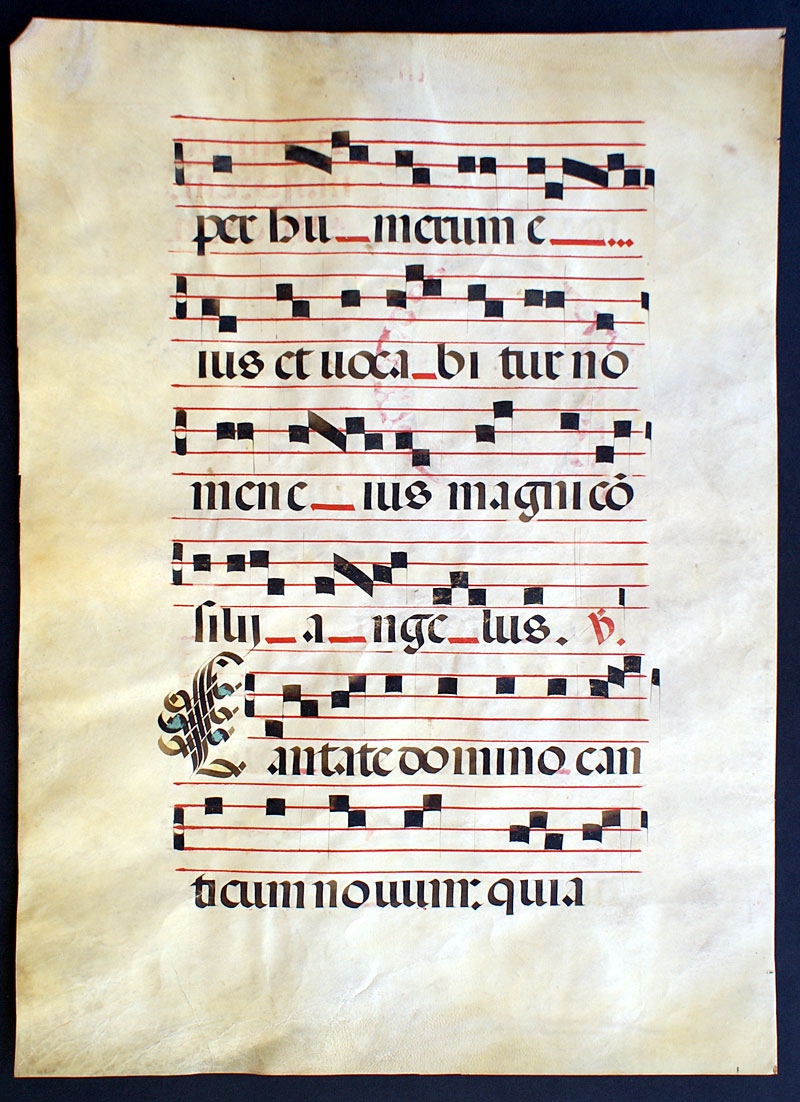 per hu_merum e_...
ius et uoca_bi tur no
men e_ius magni cō
silij_a_nge_lus. ps.
Cantate domino can
ticum nouum: quia